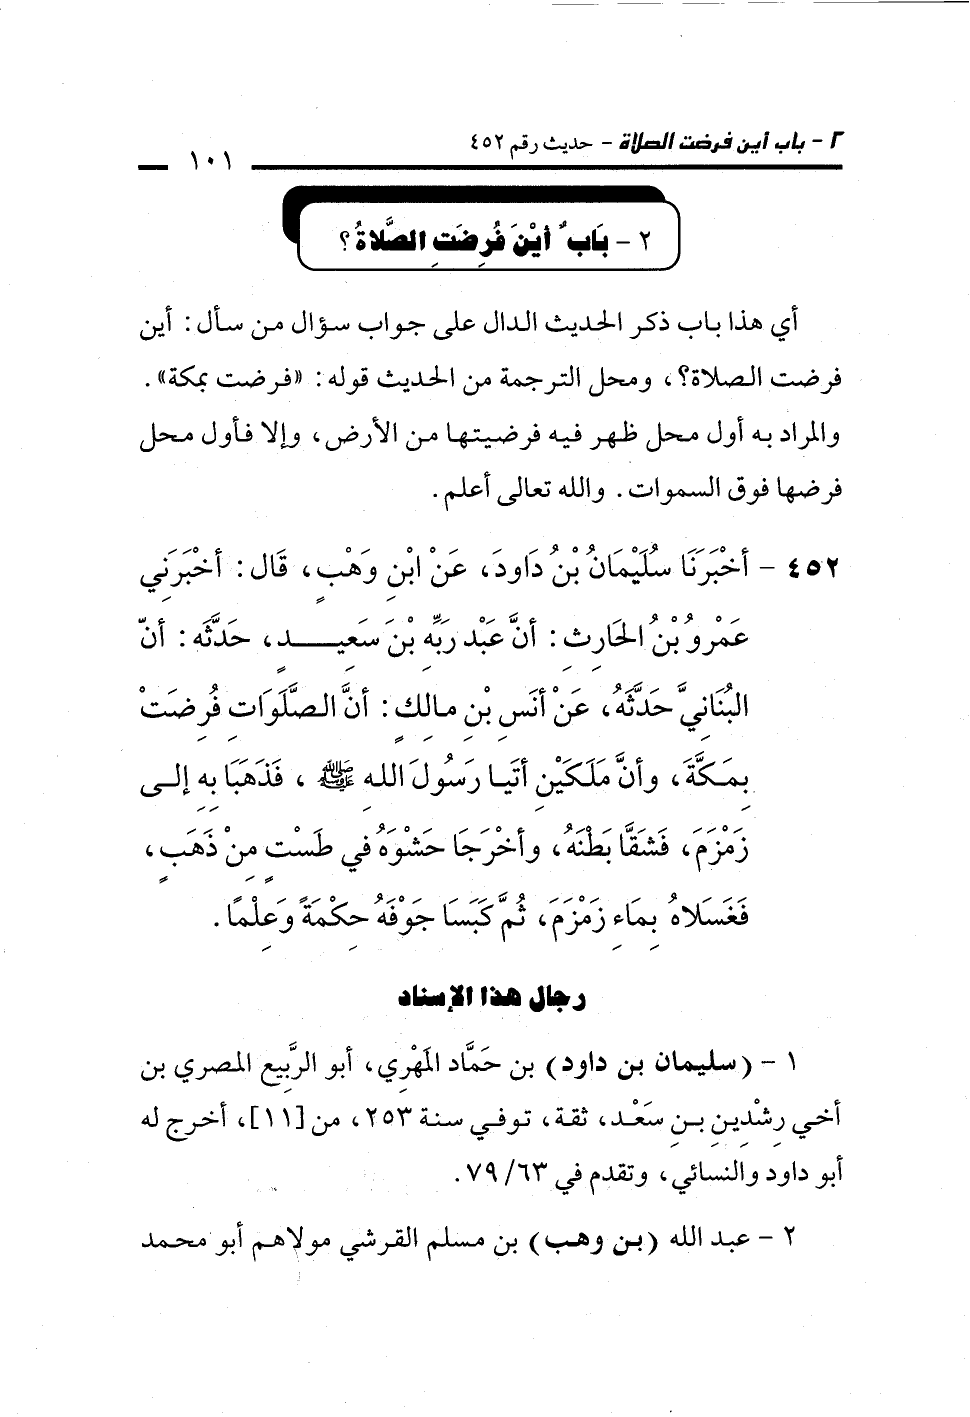 ٢ - باب أين فرضت الصلاة - حديث رقم ٤٥٢
١٠١
٢ - بَابٌ أيْنَ فُرِضَتِ الصَّلاةُ ؟
أي هذا باب ذكر الحديث الدال على جواب سؤال من سأل : أين
فرضت الصلاة؟، ومحل الترجمة من الحديث قوله : «فرضت بمكة» .
والمراد به أول محل ظهر فيه فرضيتها من الأرض، وإلا فأول محل
فرضها فوق السموات . والله تعالى أعلم .
٤٥٢ - أخْبَرَنَا سُلَيْمَانُ بْنُ دَاودَ، عَنْ ابْنِ وَهْبٍ، قَال : أخْبَرَنِي
عَمْرو بْنُ الحَارِثِ : أنَّ عَبْد رَبِّهِ بْنَ سَعِيدٍ، حَدَّثَه : أنّ
البُنَانِيَّ حَدَّثَهُ، عَنْ أنَسِ بْنِ مالِكٍ : أنَّ الصَّلَوَاتِ فُرِضَتْ
بِمَكَّةَ، وأنَّ مَلَكَيْنِ أتَيا رَسُولَ اللهِ ﷺ ، فَذَهَبَا بِهِ إلى
زَمْزَمَ، فَشَقَّا بَطْنَهُ، وأخْرَجَا حَشْوَهُ في طَسْتٍ مِنْ ذَهَبٍ،
فَغَسَلاهُ بِمَاءِ زَمْزَمَ، ثُمَّ كَبَسَا جَوْفَهُ حِكْمَةً وَعِلْمًا .
رجال هذا الإسناد
١ - (سليمان بن داود) بن حَمَّاد المَهْرِي، أبو الرَّبِيع المصري بن
أخي رِشْدِينِ بن سَعْد، ثقة، توفي سنة ٢٥٣، من [١١]، أخرج له
أبو داود والنسائي، وتقدم في ٦٣/ ٧٩.
٢ - عبد الله (بن وهب) بن مسلم القرشي مولاهم أبو محمد